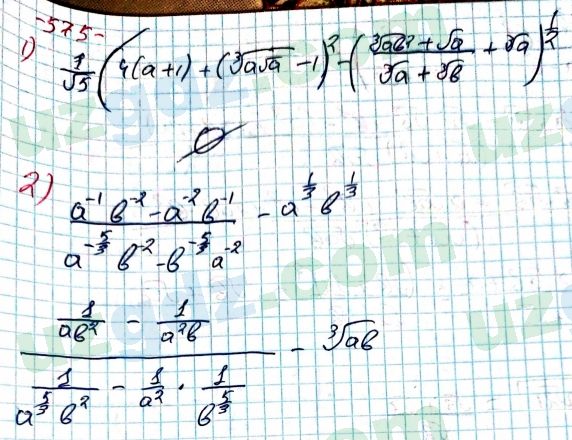 -575-
1) 1/√5 (4(a+1) + (∛a√a - 1)² - (∛ab² + √a / ∛a + ∛b + ∛a)^½
2) a⁻¹ b⁻² - a⁻² b⁻¹ / a^(-5/3) b⁻² - b^(-5/3) a⁻² - a^(1/3) b^(1/3)
1/ab² - 1/a²b / 1/a^(5/3) b² - 1/a² · 1/b^(5/3) - ∛ab
uzgdz.com